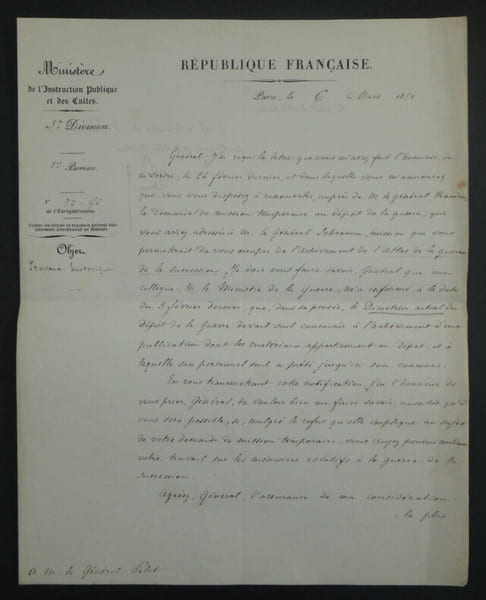 Ministère
de l'Instruction Publique
et des Cultes.
5me Division.
1er Bureau.
No 72-93
de l'Enregistrement.
Objet
Travaux historiques
RÉPUBLIQUE FRANÇAISE.
Paris, le 6 Mars 1851
Général, J'ai reçu la lettre que vous m'avez fait l'honneur de
m'écrire, le 26 février dernier, et dans laquelle vous m'annoncez
que vous vous disposez à renouveler, auprès de M. le Général Randon,
la demande de mission temporaire au dépôt de la guerre, que
vous aviez adressée à M. le Général Schramm, mission qui vous
permettrait de vous occuper de l'achèvement de l'Atlas de la guerre
de la succession. Je dois vous faire savoir, Général que mon
collègue, M. le Ministre de la Guerre, m'a informé, à la date
du 3 février dernier, que, dans sa pensée, le Directeur actuel du
dépôt de la Guerre devait seul concourir à l'achèvement d'une
publication dont les matériaux appartiennent au dépôt, et à
laquelle son personnel seul a prêté jusqu'ici son concours.
En vous transmettant cette notification, j'ai l'honneur de
vous prier, Général, de vouloir bien me faire savoir, aussitôt qu'il
vous sera possible, si, malgré le refus qu'elle implique au sujet
de votre demande de mission temporaire, vous croyez pouvoir continuer
votre travail sur les mémoires relatifs à la guerre de la
succession.
Agréez, Général, l'assurance de ma considération
la plus
A M. le Général Pelet